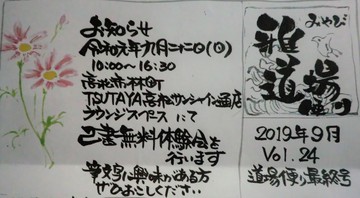 お知らせ
令和元年九月二十二日(日)
10:00〜16:30
高松市林町
TSUTAYA高松サンシャイン通店
オレンジスペース にて
己書無料体験会を
行います
筆文字に興味がある方
ぜひおこしください
みやび
雅
道場
便り
2019年9月
Vol.24
道場便り最終号